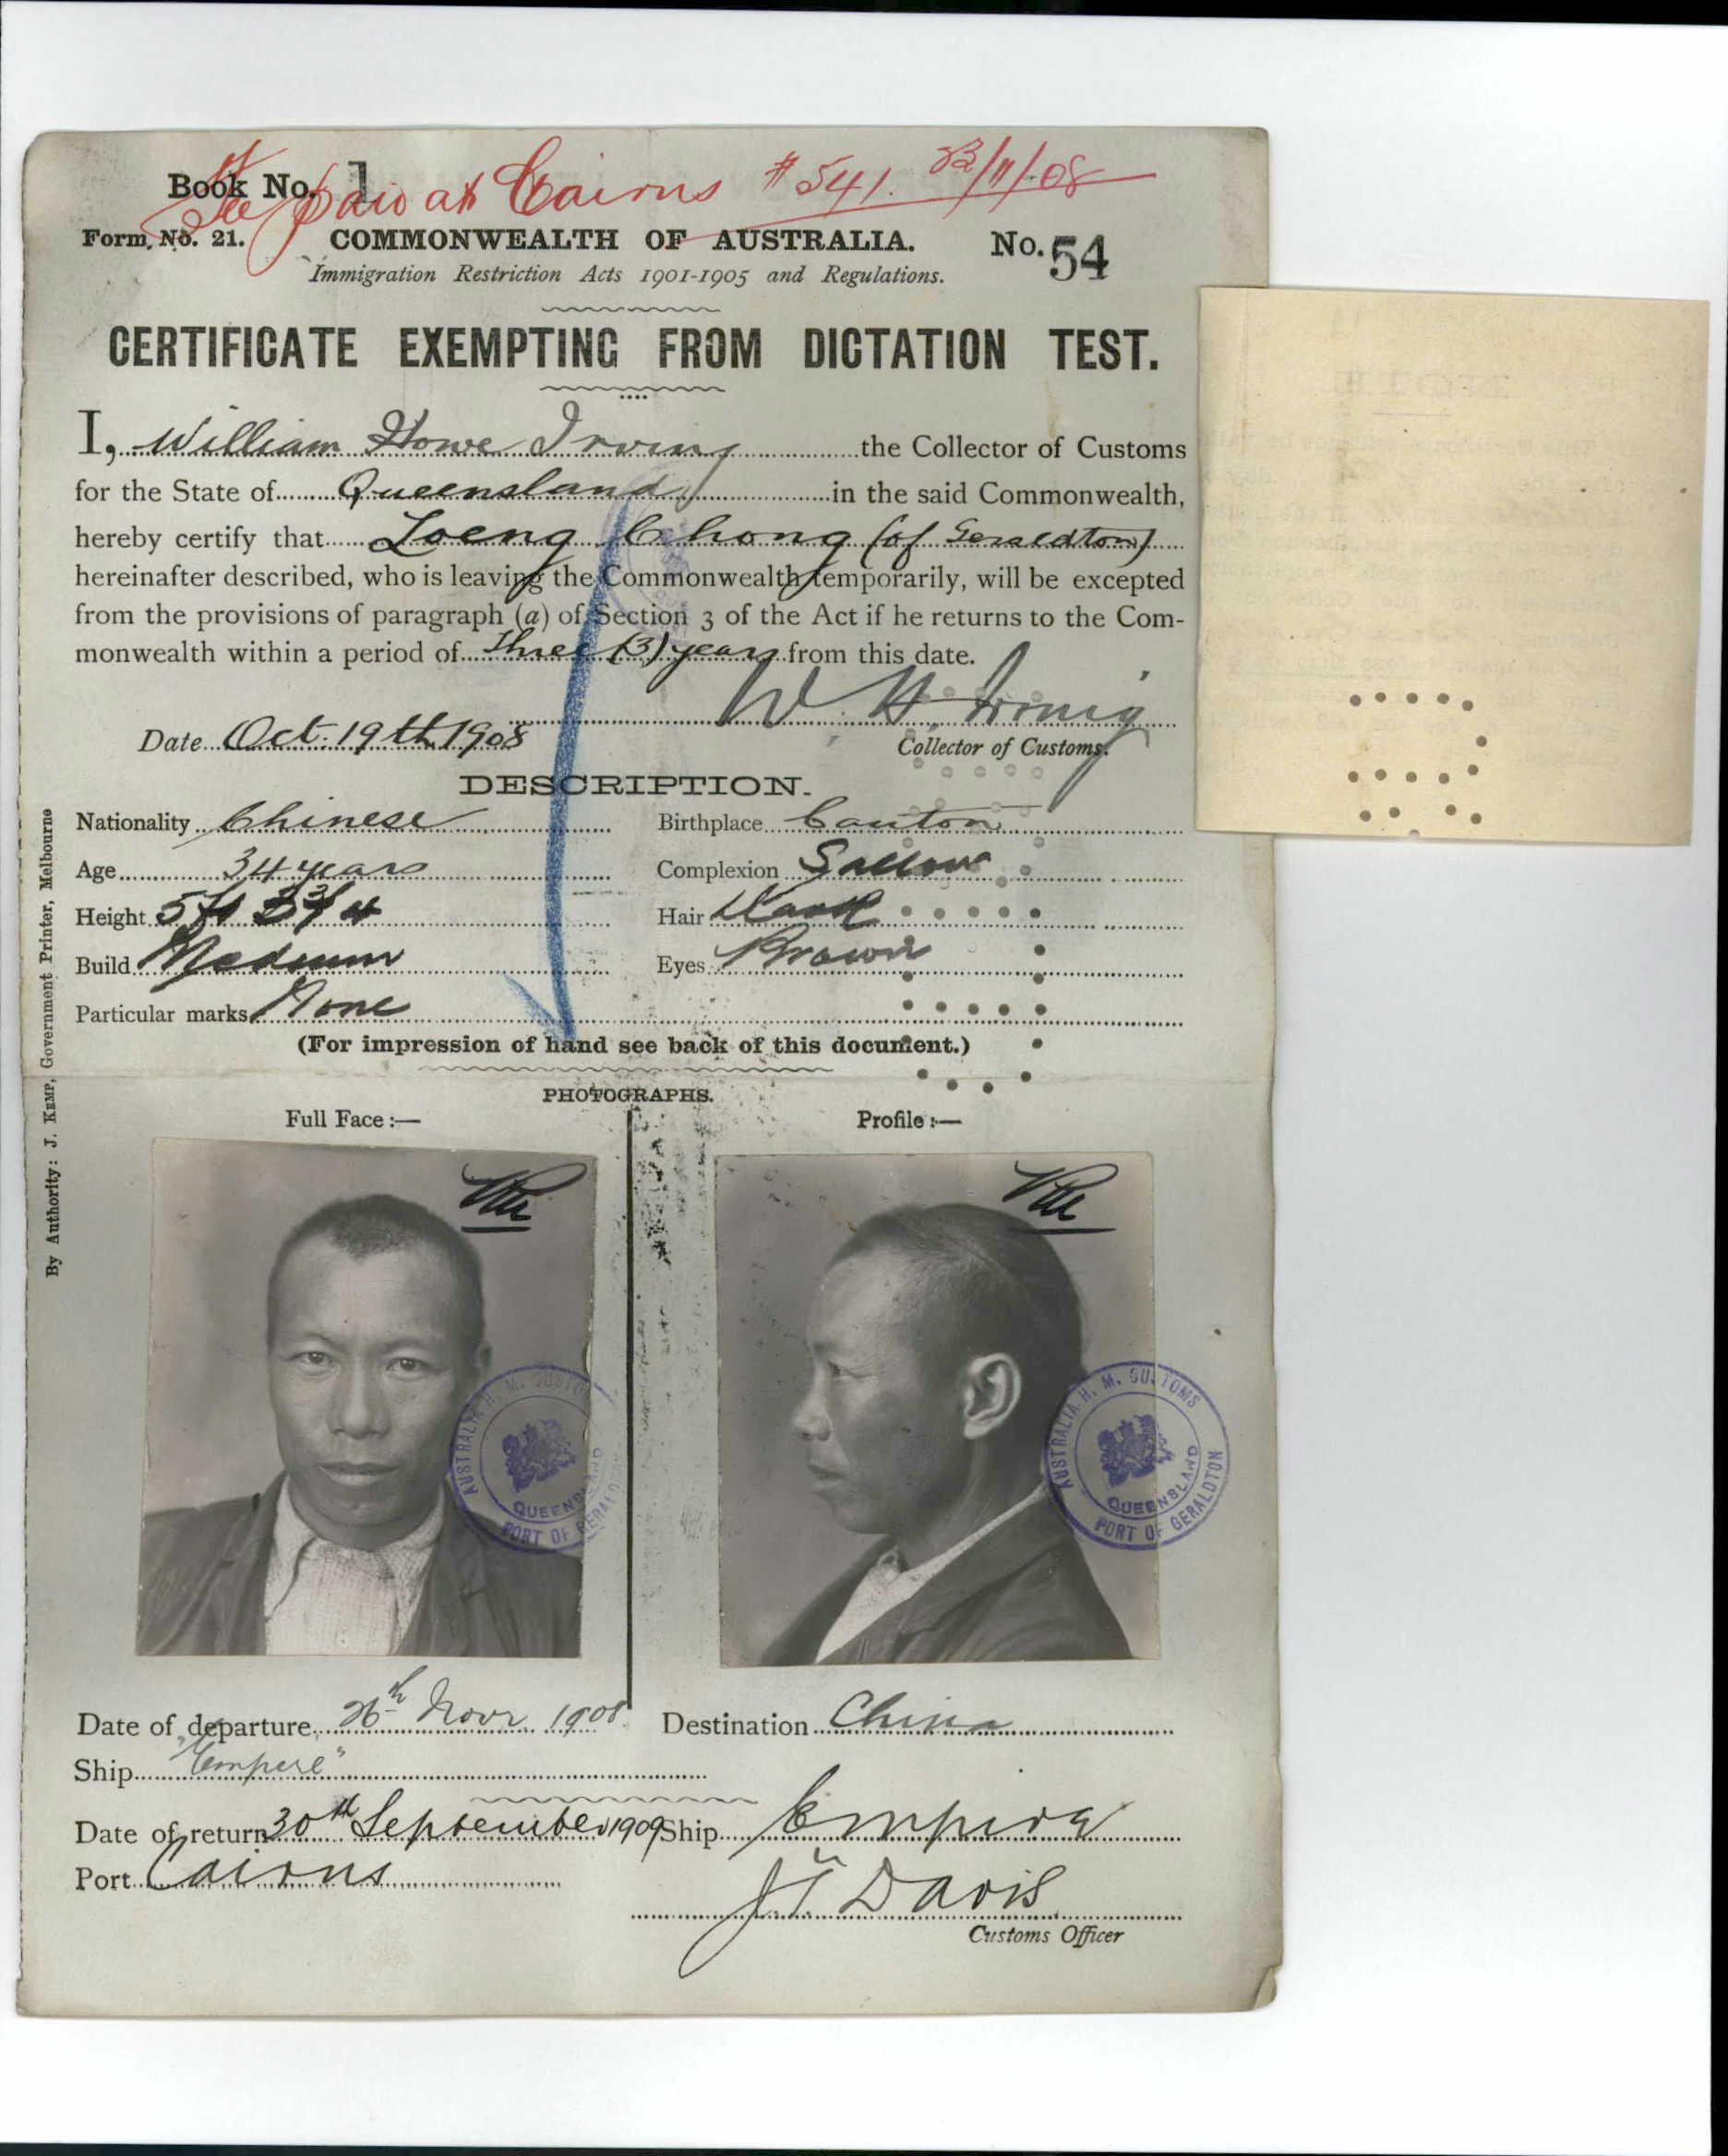 Fee paid at Cairns # 541. 23/11/08
Book No. 1
Form No. 21. COMMONWEALTH OF AUSTRALIA. No. 54
Immigration Restriction Acts 1901-1905 and Regulations.
CERTIFICATE EXEMPTING FROM DICTATION TEST.
I, William Howe Irving the Collector of Customs
for the State of Queensland in the said Commonwealth,
hereby certify that Loeng Chong (of Geraldton)
hereinafter described, who is leaving the Commonwealth temporarily, will be excepted
from the provisions of paragraph (a) of Section 3 of the Act if he returns to the Com-
monwealth within a period of Three (3) years from this date.
W. H. Irving
Date Oct. 19th 1908 Collector of Customs.
DESCRIPTION.
Nationality Chinese Birthplace Canton
Age 34 years Complexion Sallow
Height 5 ft 3 3/4 Hair Dark
Build Medium Eyes Brown
Particular marks None
(For impression of hand see back of this document.)
PHOTOGRAPHS.
Full Face :— Profile :—
AUSTRALIA H. M. CUSTOMS
QUEENSLAND
PORT OF GERALDTON
AUSTRALIA H. M. CUSTOMS
QUEENSLAND
PORT OF GERALDTON
Date of departure 26th Novr 1908 Destination China
Ship "Empire"
Date of return 30th September 1909 Ship Empire
Port Cairns
J. T. Davis
Customs Officer
By Authority: J. KEMP, Government Printer, Melbourne